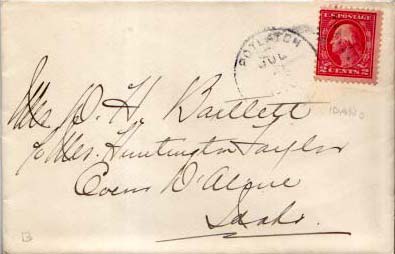 POTLATCH
JUL
U.S. POSTAGE
2 CENTS 2
IDAHO
Mrs. D. H. Bartlett
c/o Mrs. Huntington Taylor
Coeur D'Alene
Idaho.